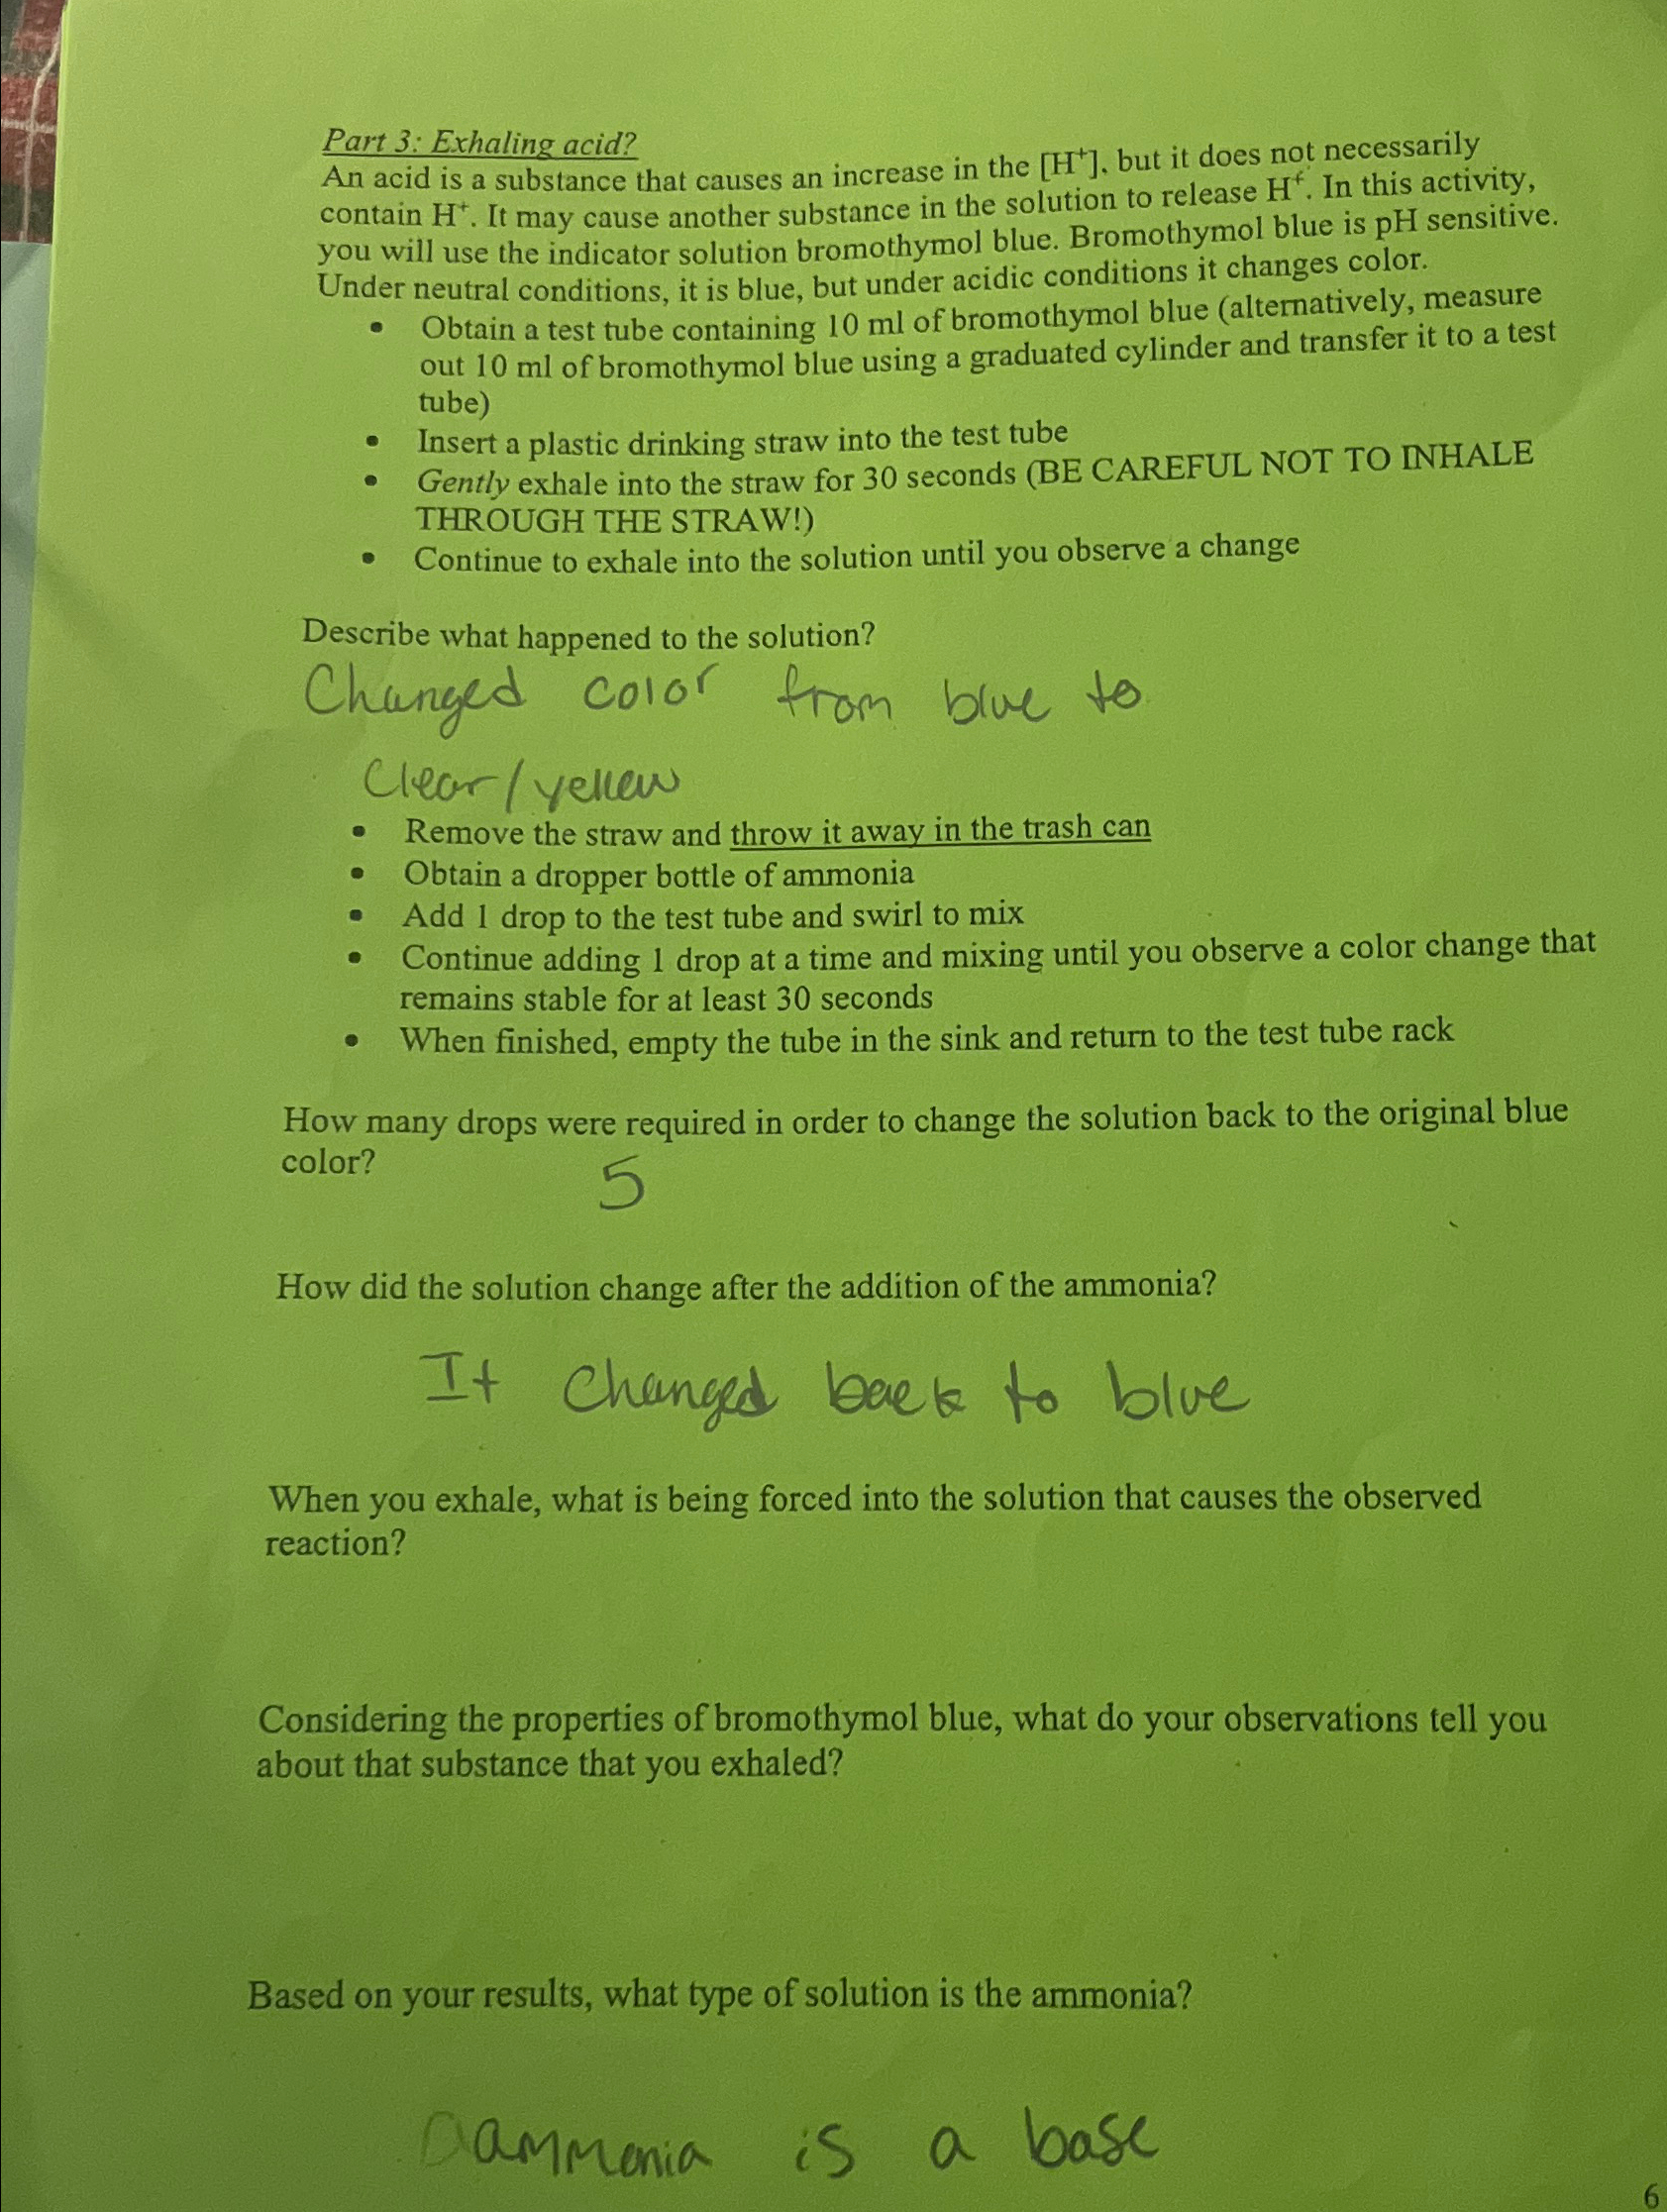 Part 3: Exhaling acid?
An acid is a substance that causes an increase in the [H⁺], but it does not necessarily
contain H⁺. It may cause another substance in the solution to release H⁺. In this activity,
you will use the indicator solution bromothymol blue. Bromothymol blue is pH sensitive.
Under neutral conditions, it is blue, but under acidic conditions it changes color.
• Obtain a test tube containing 10 ml of bromothymol blue (alternatively, measure
out 10 ml of bromothymol blue using a graduated cylinder and transfer it to a test
tube)
• Insert a plastic drinking straw into the test tube
• Gently exhale into the straw for 30 seconds (BE CAREFUL NOT TO INHALE
THROUGH THE STRAW!)
• Continue to exhale into the solution until you observe a change
Describe what happened to the solution?
Changed color from blue to
Clear/yellow
• Remove the straw and throw it away in the trash can
• Obtain a dropper bottle of ammonia
• Add 1 drop to the test tube and swirl to mix
• Continue adding 1 drop at a time and mixing until you observe a color change that
remains stable for at least 30 seconds
• When finished, empty the tube in the sink and return to the test tube rack
How many drops were required in order to change the solution back to the original blue
color?
5
How did the solution change after the addition of the ammonia?
It changed back to blue
When you exhale, what is being forced into the solution that causes the observed
reaction?
Considering the properties of bromothymol blue, what do your observations tell you
about that substance that you exhaled?
Based on your results, what type of solution is the ammonia?
ammonia is a base
6